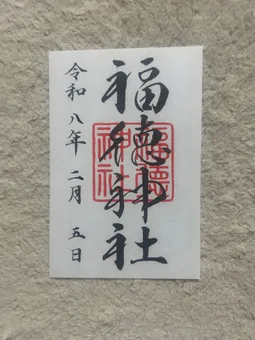 福徳神社
福徳神社
令和八年二月五日